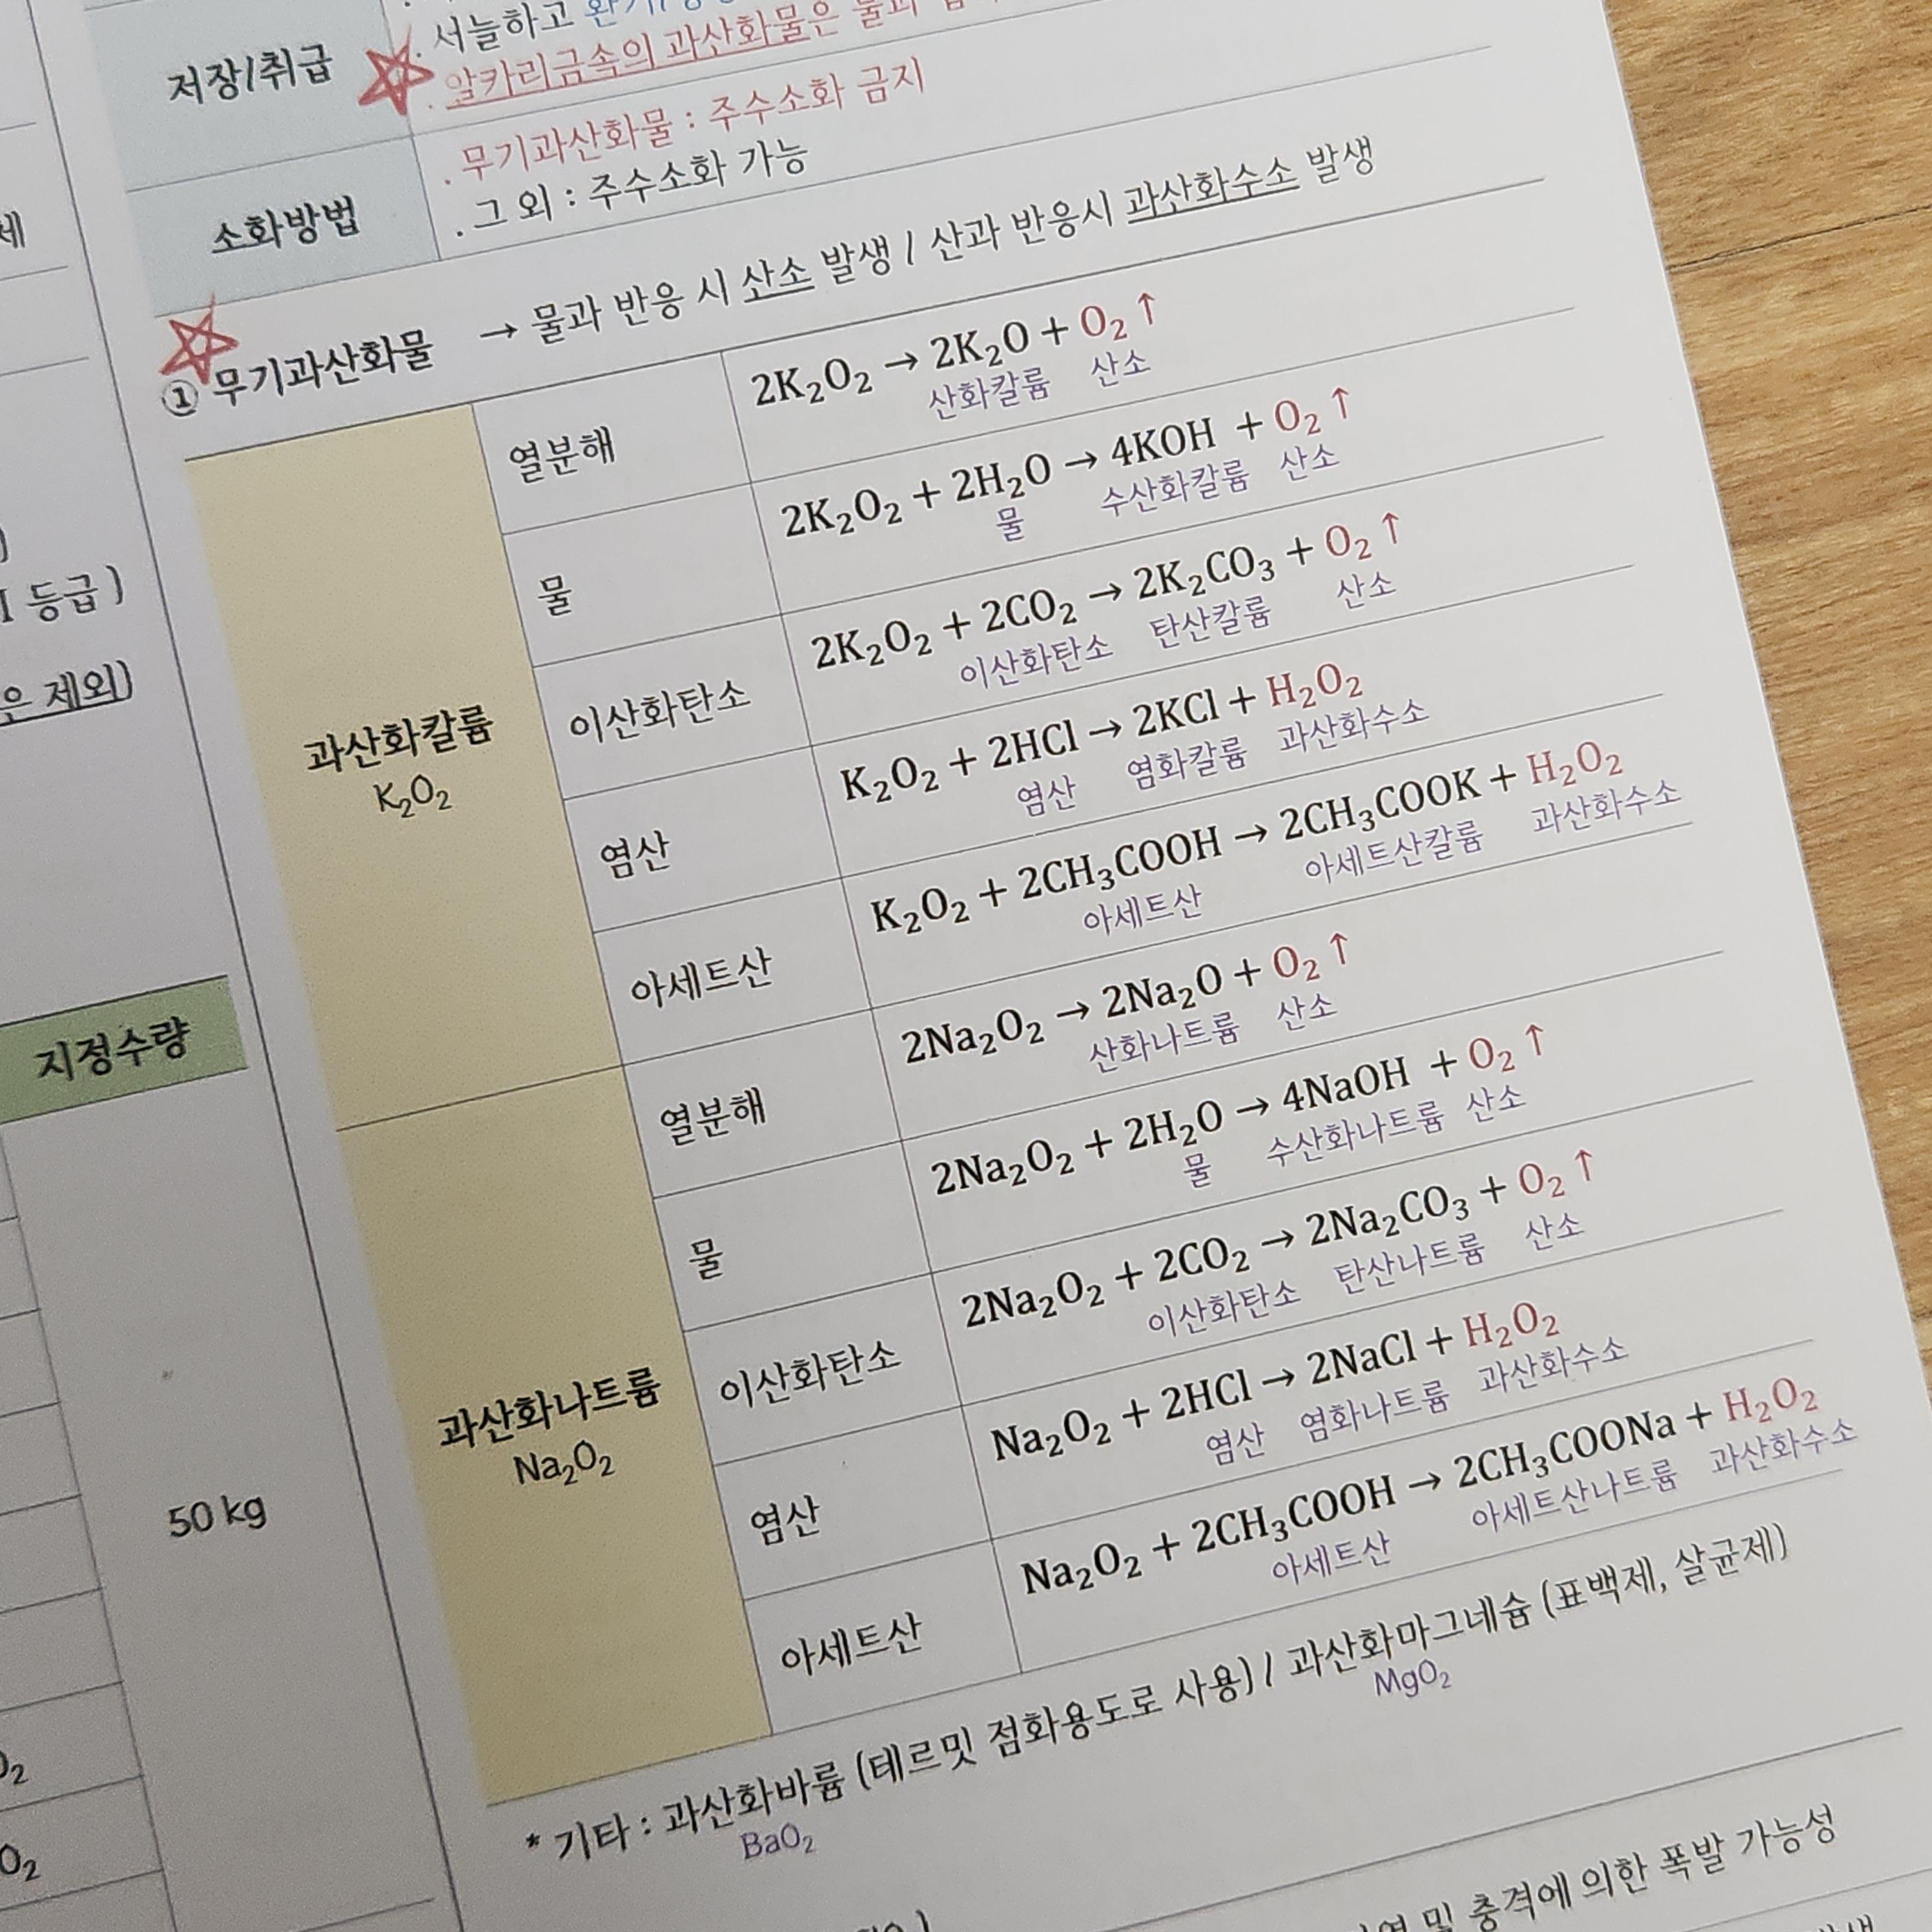 저장/취급
. 서늘하고
. 알카리금속의 과산화물은 물과
소화방법
. 무기과산화물 : 주수소화 금지
. 그 외 : 주수소화 가능
① 무기과산화물 → 물과 반응 시 산소 발생 / 산과 반응시 과산화수소 발생
과산화칼륨
K₂O₂
열분해
2K₂O₂ → 2K₂O + O₂ ↑
산화칼륨 산소
물
2K₂O₂ + 2H₂O → 4KOH + O₂ ↑
물 수산화칼륨 산소
이산화탄소
2K₂O₂ + 2CO₂ → 2K₂CO₃ + O₂ ↑
이산화탄소 탄산칼륨 산소
염산
K₂O₂ + 2HCl → 2KCl + H₂O₂
염산 염화칼륨 과산화수소
아세트산
K₂O₂ + 2CH₃COOH → 2CH₃COOK + H₂O₂
아세트산 아세트산칼륨 과산화수소
과산화나트륨
Na₂O₂
열분해
2Na₂O₂ → 2Na₂O + O₂ ↑
산화나트륨 산소
물
2Na₂O₂ + 2H₂O → 4NaOH + O₂ ↑
물 수산화나트륨 산소
이산화탄소
2Na₂O₂ + 2CO₂ → 2Na₂CO₃ + O₂ ↑
이산화탄소 탄산나트륨 산소
염산
Na₂O₂ + 2HCl → 2NaCl + H₂O₂
염산 염화나트륨 과산화수소
아세트산
Na₂O₂ + 2CH₃COOH → 2CH₃COONa + H₂O₂
아세트산 아세트산나트륨 과산화수소
* 기타 : 과산화바륨 (테르밋 점화용도로 사용) / 과산화마그네슘 (표백제, 살균제)
BaO₂ MgO₂
및 충격에 의한 폭발 가능성
등급 )
은 제외)
지정수량
50 kg